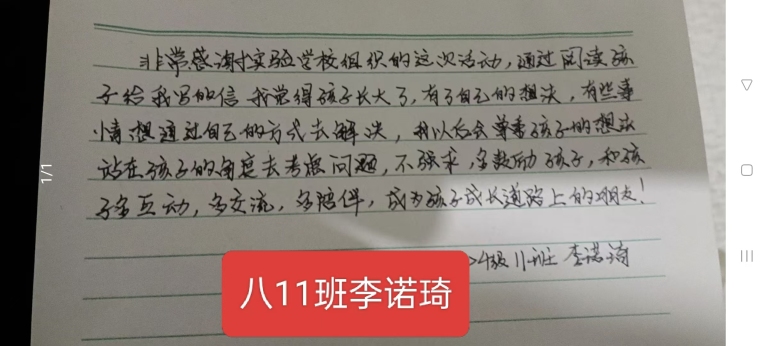 非常感谢实验学校组织的这次活动，通过阅读孩
子给我写的信，我觉得孩子长大了，有了自己的想法，有些事
情想通过自己的方式去解决，我以后会尊重孩子的想法
站在孩子的角度去考虑问题，不强求，多鼓励孩子，和孩
子多互动，多交流，多陪伴，成为孩子成长道路上的朋友！
级11班 李诺琦
八11班李诺琦
1/1